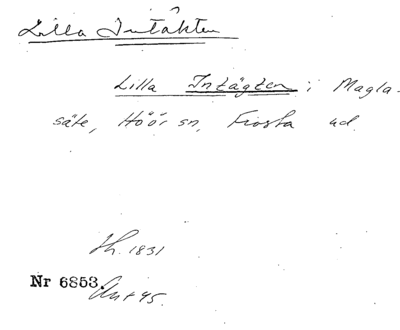 Lilla Intäkten
Lilla Intägten i Magla-
säte, Höör sn, Frosta hd
Sh. 1831
Nr 6853. Ant 45.